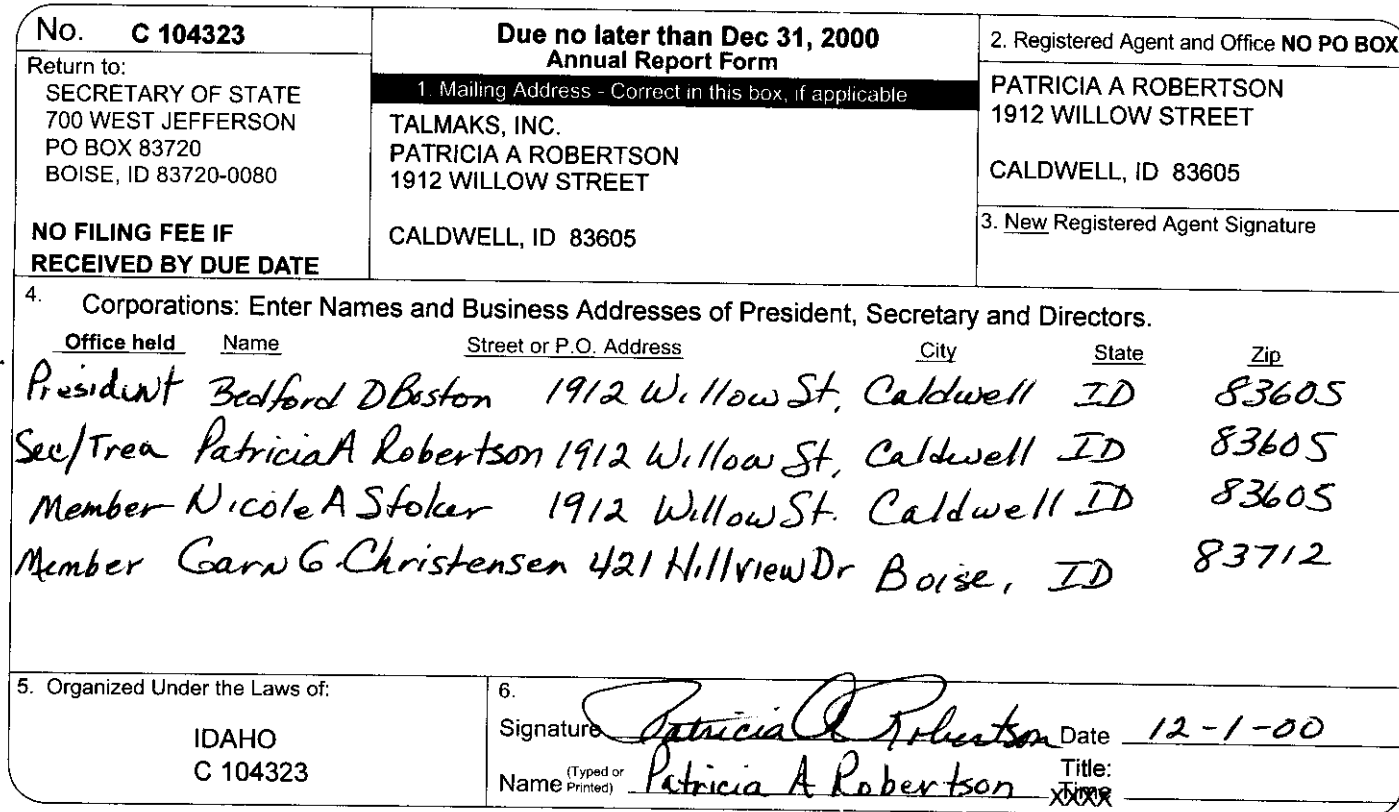 No. C 104323
Return to:
SECRETARY OF STATE
700 WEST JEFFERSON
PO BOX 83720
BOISE, ID 83720-0080
NO FILING FEE IF
RECEIVED BY DUE DATE
Due no later than Dec 31, 2000
Annual Report Form
1. Mailing Address - Correct in this box, if applicable
TALMAKS, INC.
PATRICIA A ROBERTSON
1912 WILLOW STREET
CALDWELL, ID 83605
2. Registered Agent and Office NO PO BOX
PATRICIA A ROBERTSON
1912 WILLOW STREET
CALDWELL, ID 83605
3. New Registered Agent Signature
4. Corporations: Enter Names and Business Addresses of President, Secretary and Directors.
Office held Name Street or P.O. Address City State Zip
President Bedford D Boston 1912 Willow St, Caldwell ID 83605
Sec/Trea Patricia A Robertson 1912 Willow St, Caldwell ID 83605
Member Nicole A Stoker 1912 Willow St. Caldwell ID 83605
Member Garn G. Christensen 421 Hillview Dr Boise, ID 83712
5. Organized Under the Laws of:
IDAHO
C 104323
6.
Signature Patricia A Robertson Date 12-1-00
Name (Typed or Printed) Patricia A Robertson Title: